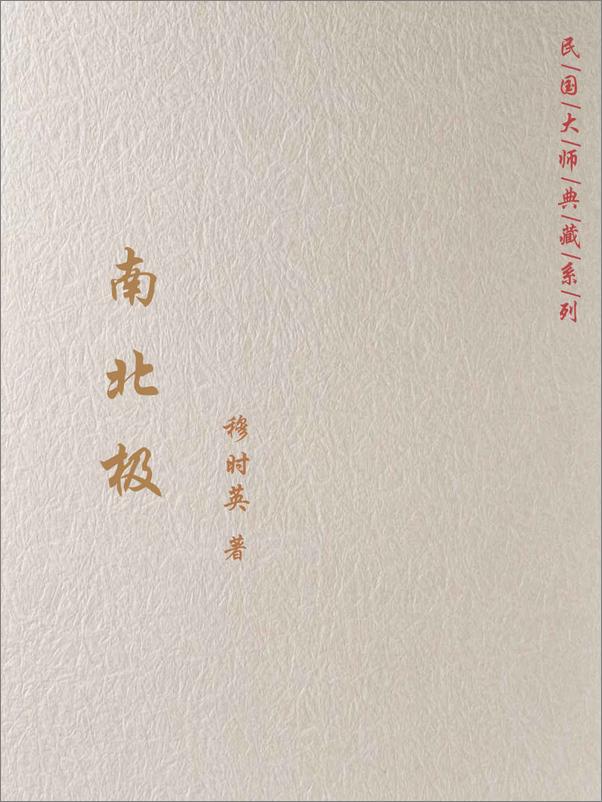 民|国|大|师|典|藏|系|列
南北极
穆时英 著